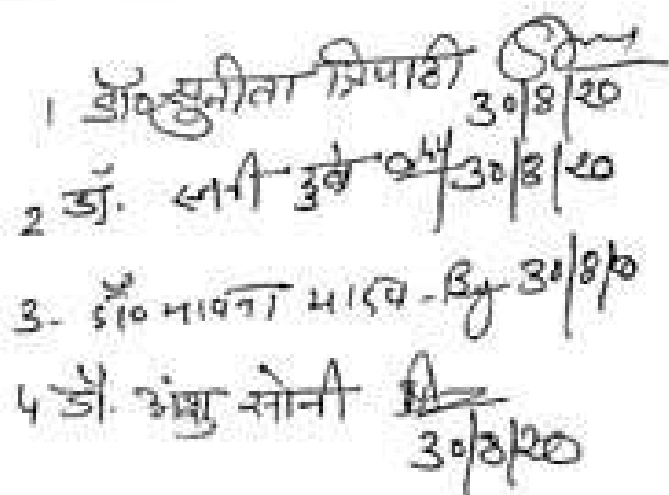 1 डॉ० सुनीता त्रिपाठी 30/8/20
2 डॉ. दुबे 30/8/20
3- डॉ० भावना यादव - By 30/8/20
4 डॉ. अंशु सोनी
30/8/20